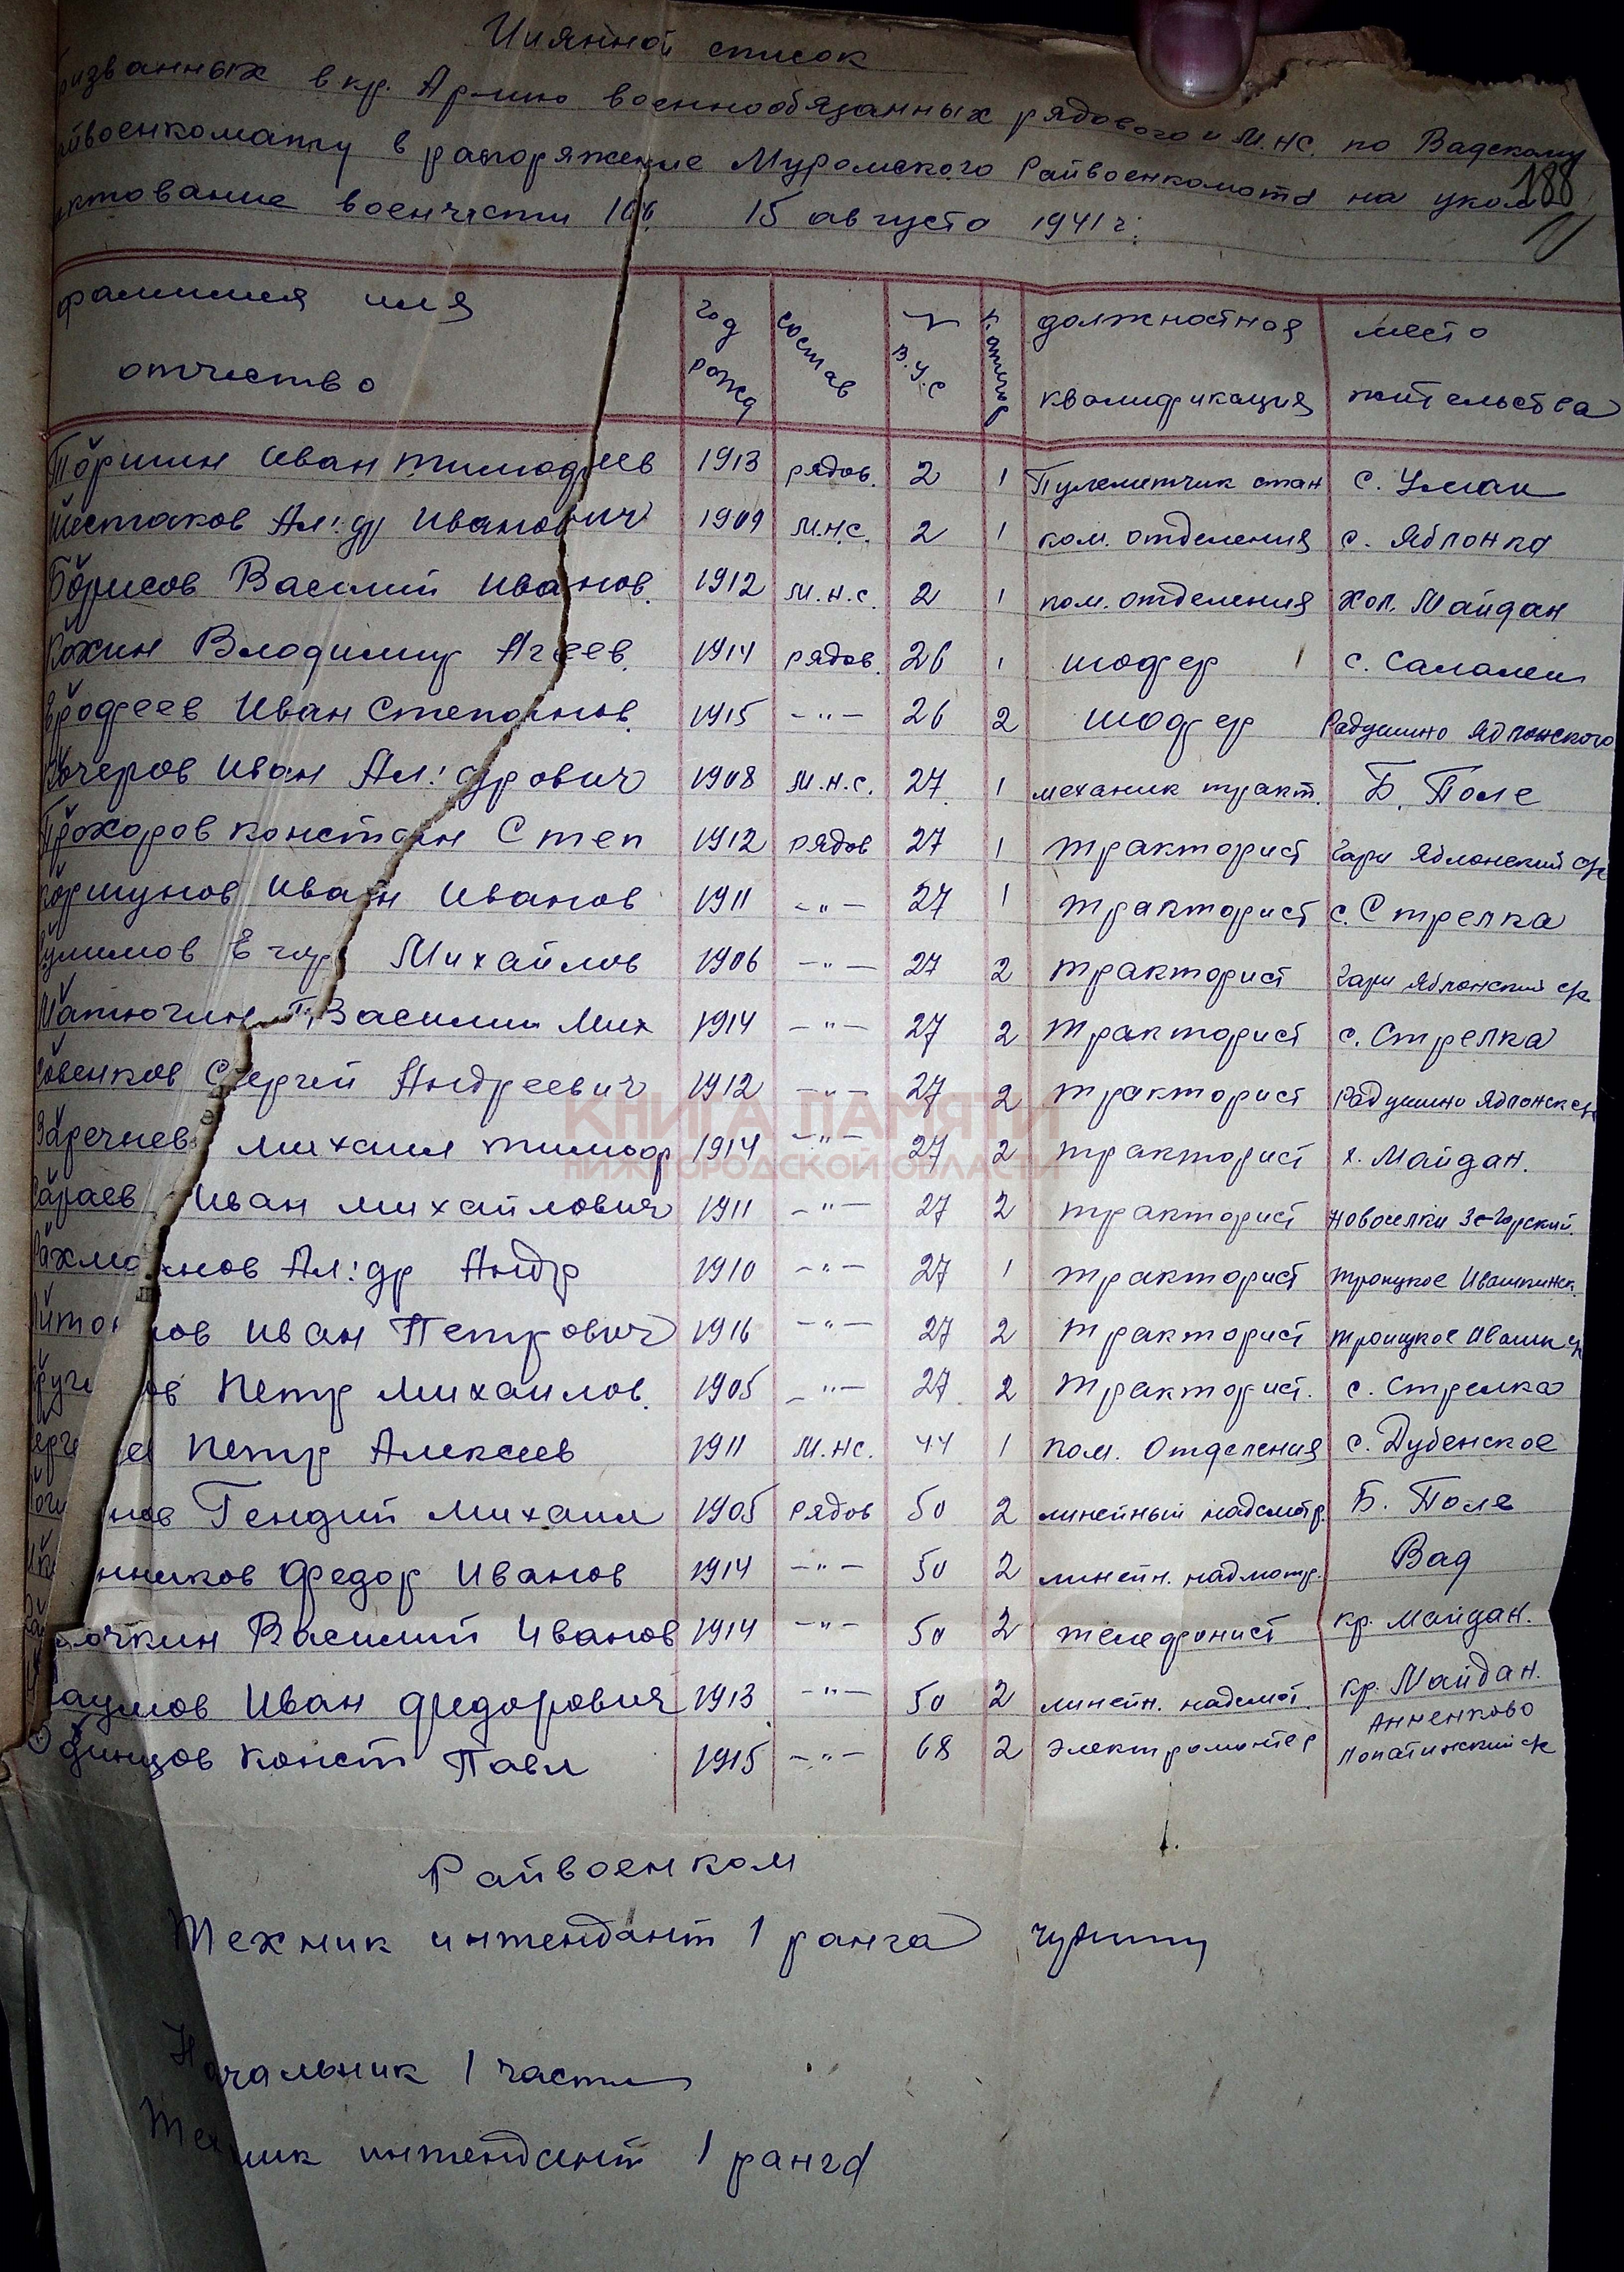 Имянной список
ризванных в кр. Армию военнообязанных рядового и М.НС. по Вадскому
йвоенкомату в распоряжение Муромского Райвоенкомата на уком
188
ктование военчасти 15 августа 1941 г.
фамилия имя отчество год рожд состав № В.У.С. должностная квалификация место жительства
Торшин Иван Тимофеев 1913 рядов. 2 1 Пулеметчик стан с.
Шестаков Ал:др Иванович 1909 М.НС. 2 1 ком. отделения с. Яблонка
Борисов Василий Иванов. 1912 М.Н.С. 2 1 пом. отделения Хол. Майдан
Кохин Владимир Агеев. 1914 рядов. 26 1 шофер с. Салалеи
Ерофеев Иван Степанов. 1915 -"- 26 2 шофер Радушино Яблонского
Кучеров Иван Ал:дрович 1908 М.Н.С. 27 1 механик тракт. Б. Поле
Прохоров Констан Степ 1912 рядов 27 1 тракторист Гари Яблонский с/с
Коршунов Иван Иванов 1911 -"- 27 1 тракторист с. Стрелка
Михайлов 1906 -"- 27 2 тракторист Гари Яблонский с/с
Матюгин Василий Мих 1914 -"- 27 2 тракторист с. Стрелка
овенков Сергей Андреевич 1912 -"- 27 2 тракторист Радушино Яблонск с/с
Заречнев Михаил Тимоф 1914 -"- 27 2 тракторист х. Майдан.
араев Иван Михайлович 1911 -"- 27 2 тракторист Новоселки
ахманов Ал:др Андр 1910 -"- 27 1 тракторист Троицкое Ивашкинск.
нов Иван Петрович 1916 -"- 27 2 тракторист Троицкое Ивашк с/с
ов Петр Михаилов. 1905 -"- 27 2 тракторист. с. Стрелка
ев Петр Алексеев 1911 М.НС. 44 1 пом. отделения с. Дубенское
нов Гендий Михаил 1905 рядов 50 2 линейный надсмотр. Б. Поле
нников Федор Иванов 1914 -"- 50 2 линейн. надмотр. Вад
очкин Василий Иванов 1914 -"- 50 2 телефонист кр. Майдан.
аумов Иван Федорович 1913 -"- 50 2 линейн. надсмот. кр. Майдан.
Одинцов Конст Павл 1915 -"- 68 2 электромонтер Анненково Лопатинский с/с
КНИГА ПАМЯТИ
НИЖГОРОДСКОЙ ОБЛАСТИ
Райвоенком
Техник интендант 1 ранга
Начальник 1 части
Техник интендант 1 ранга